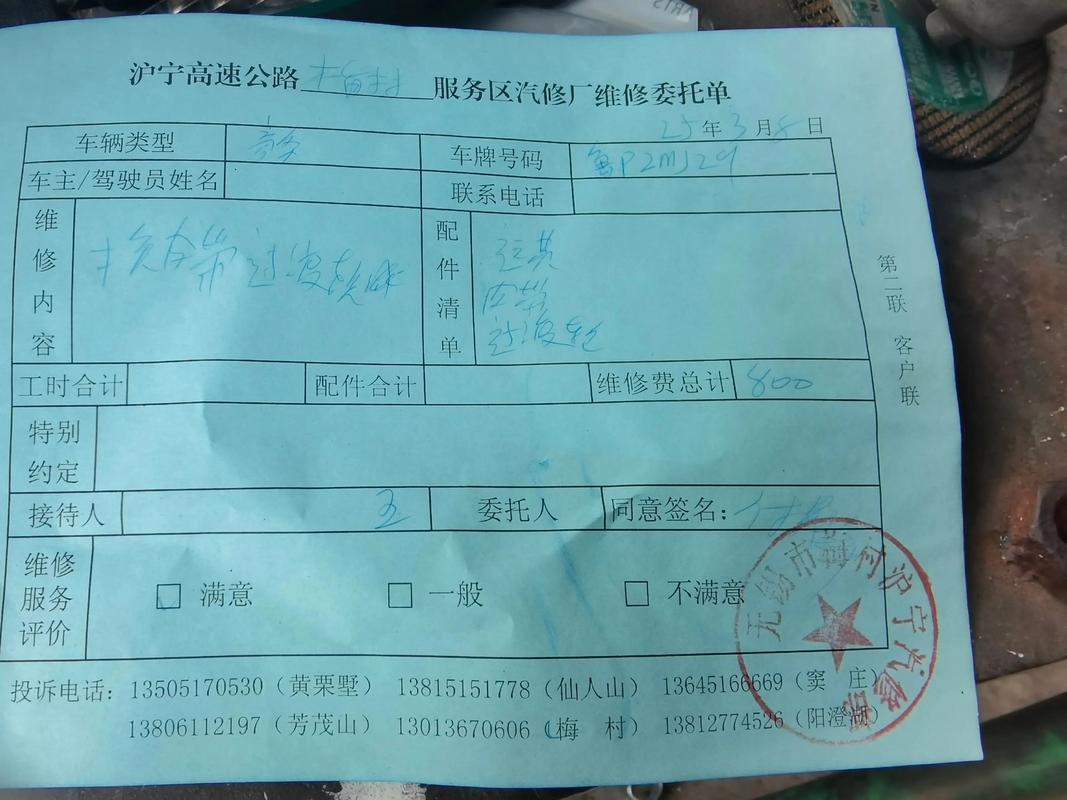 沪宁高速公路梅村服务区汽修厂维修委托单
25年3月8日
车辆类型 车牌号码 鲁P2MJ29
车主/驾驶员姓名 联系电话
维修内容 换皮带过渡轮 配件清单
皮带
过渡轮
工时合计 配件合计 维修费总计 800
特别约定
接待人 王 委托人 同意签名：
维修服务评价 □ 满意 □ 一般 □ 不满意
投诉电话：13505170530（黄栗墅） 13815151778（仙人山） 13645166669（窦 庄）
13806112197（芳茂山） 13013670606（梅 村） 13812774526（阳澄湖）
第二联 客户联
无锡市梅村沪宁汽修